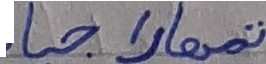 تمھارا جیا۔